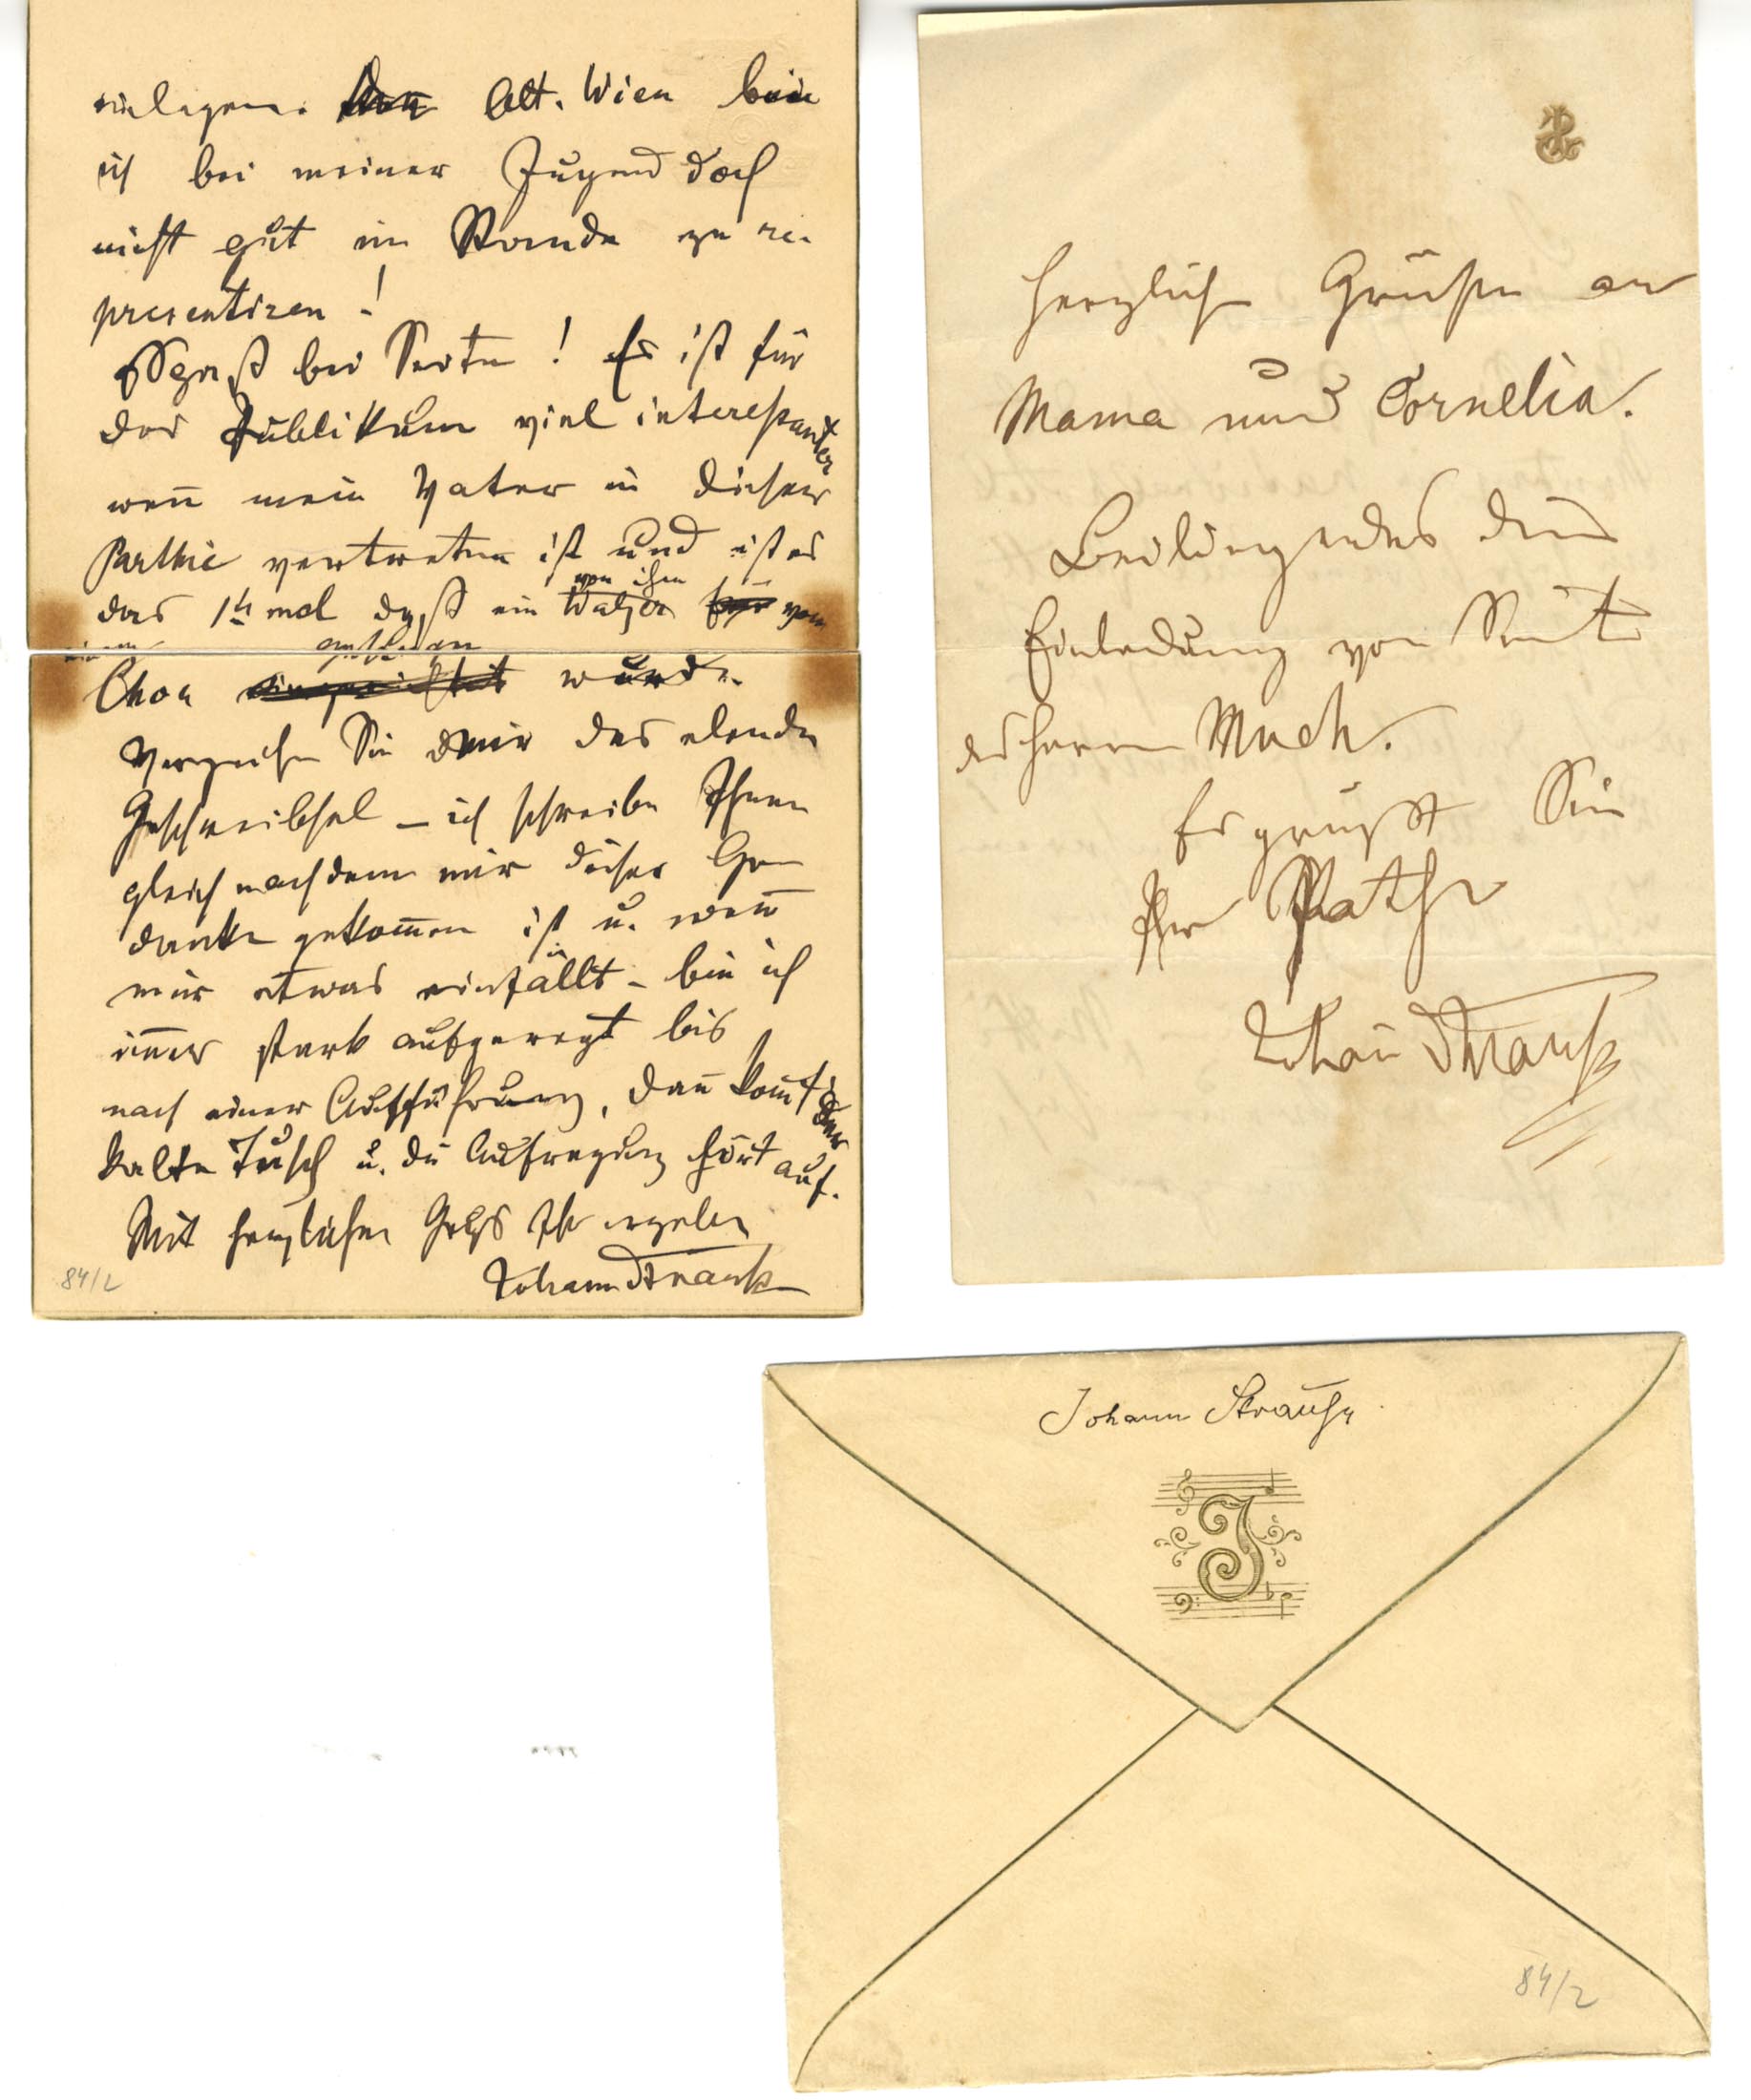 einlagen. Alt. Wien bin
ich bei meiner Jugend doch
nicht gut im Stande zu re-
presentiren!
Spaß bei Seite! Es ist für
das Publikum viel interessanter
wenn mein Vater in dieser
Parthie vertreten ist und ist es
das 1te mal daß ein Walzer von ihm vom
Chor gesungen wurde.
Verzeihen Sie mir das elende
Geschreibsel – ich schreibe Ihnen
gleich nachdem mir dieser Ge
danke gekommen ist u. wenn
mir etwas einfällt – bin ich
immer stark aufgeregt bis
nach einer Aufführung, dann kommt der
kalte Tusch u. die Aufregung hört auf.
Mit herzlichem Gruß Ihr ergeben
Johann Strauss
84/2
Herzliche Grüße an
Mama und Cornelia.
Beiliegendes die
Einladung von Seite
des Herrn Much.
Es grüßt Sie
Ihr Pathe
Johann Strauss
Johann Strauss
J
84/2